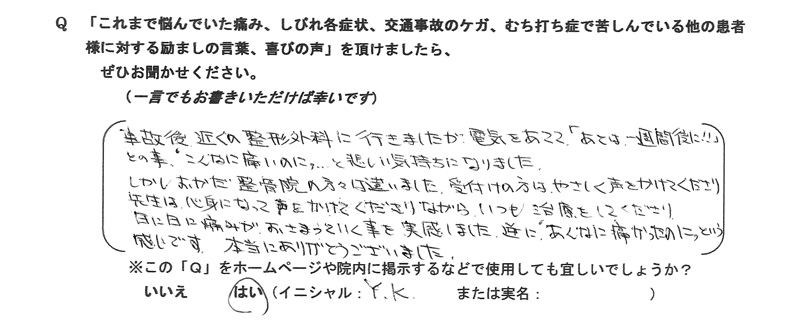 Q 「これまで悩んでいた痛み、しびれ各症状、交通事故のケガ、むち打ち症で苦しんでいる他の患者
様に対する励ましの言葉、喜びの声」を頂けましたら、
ぜひお聞かせください。
(一言でもお書きいただけば幸いです)
事故後、近くの整形外科に行きましたが、電気をあてて、「あとは、一週間後に!!」
との事、“こんなに痛いのに、…と悲しい気持ちになりました。
しかしおかだ整骨院の方々は違いました。受付けの方はやさしく声をかけてくださり
先生は心身になって声をかけてくださりながら、いつも治療をしてくださり
日に日に痛みが、おさまっていく事を実感しました。逆に“あんなに痛かったのに”っという
感じです。本当にありがとうございました。
※この「Q」をホームページや院内に掲示するなどで使用しても宜しいでしょうか?
いいえ はい (イニシャル: Y.K. または実名: )